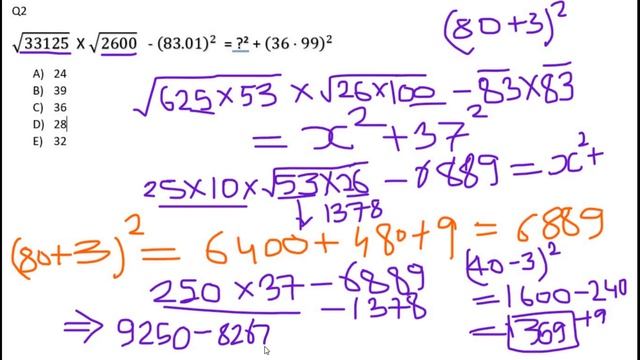 Q2
√33125 X √2600 - (83.01)² = ?² + (36·99)²
A) 24
B) 39
C) 36
D) 28
E) 32
(80+3)²
√625×53 × √26×100 - 83×83
= x² + 37²
25×10×√53×26 - 6889 = x² +
↓ 1378
(80+3)² = 6400 + 480 + 9 = 6889
250 × 37 - 6889
- 1378
⇒ 9250 - 8267
(40-3)²
= 1600 - 240
= 1369 +9